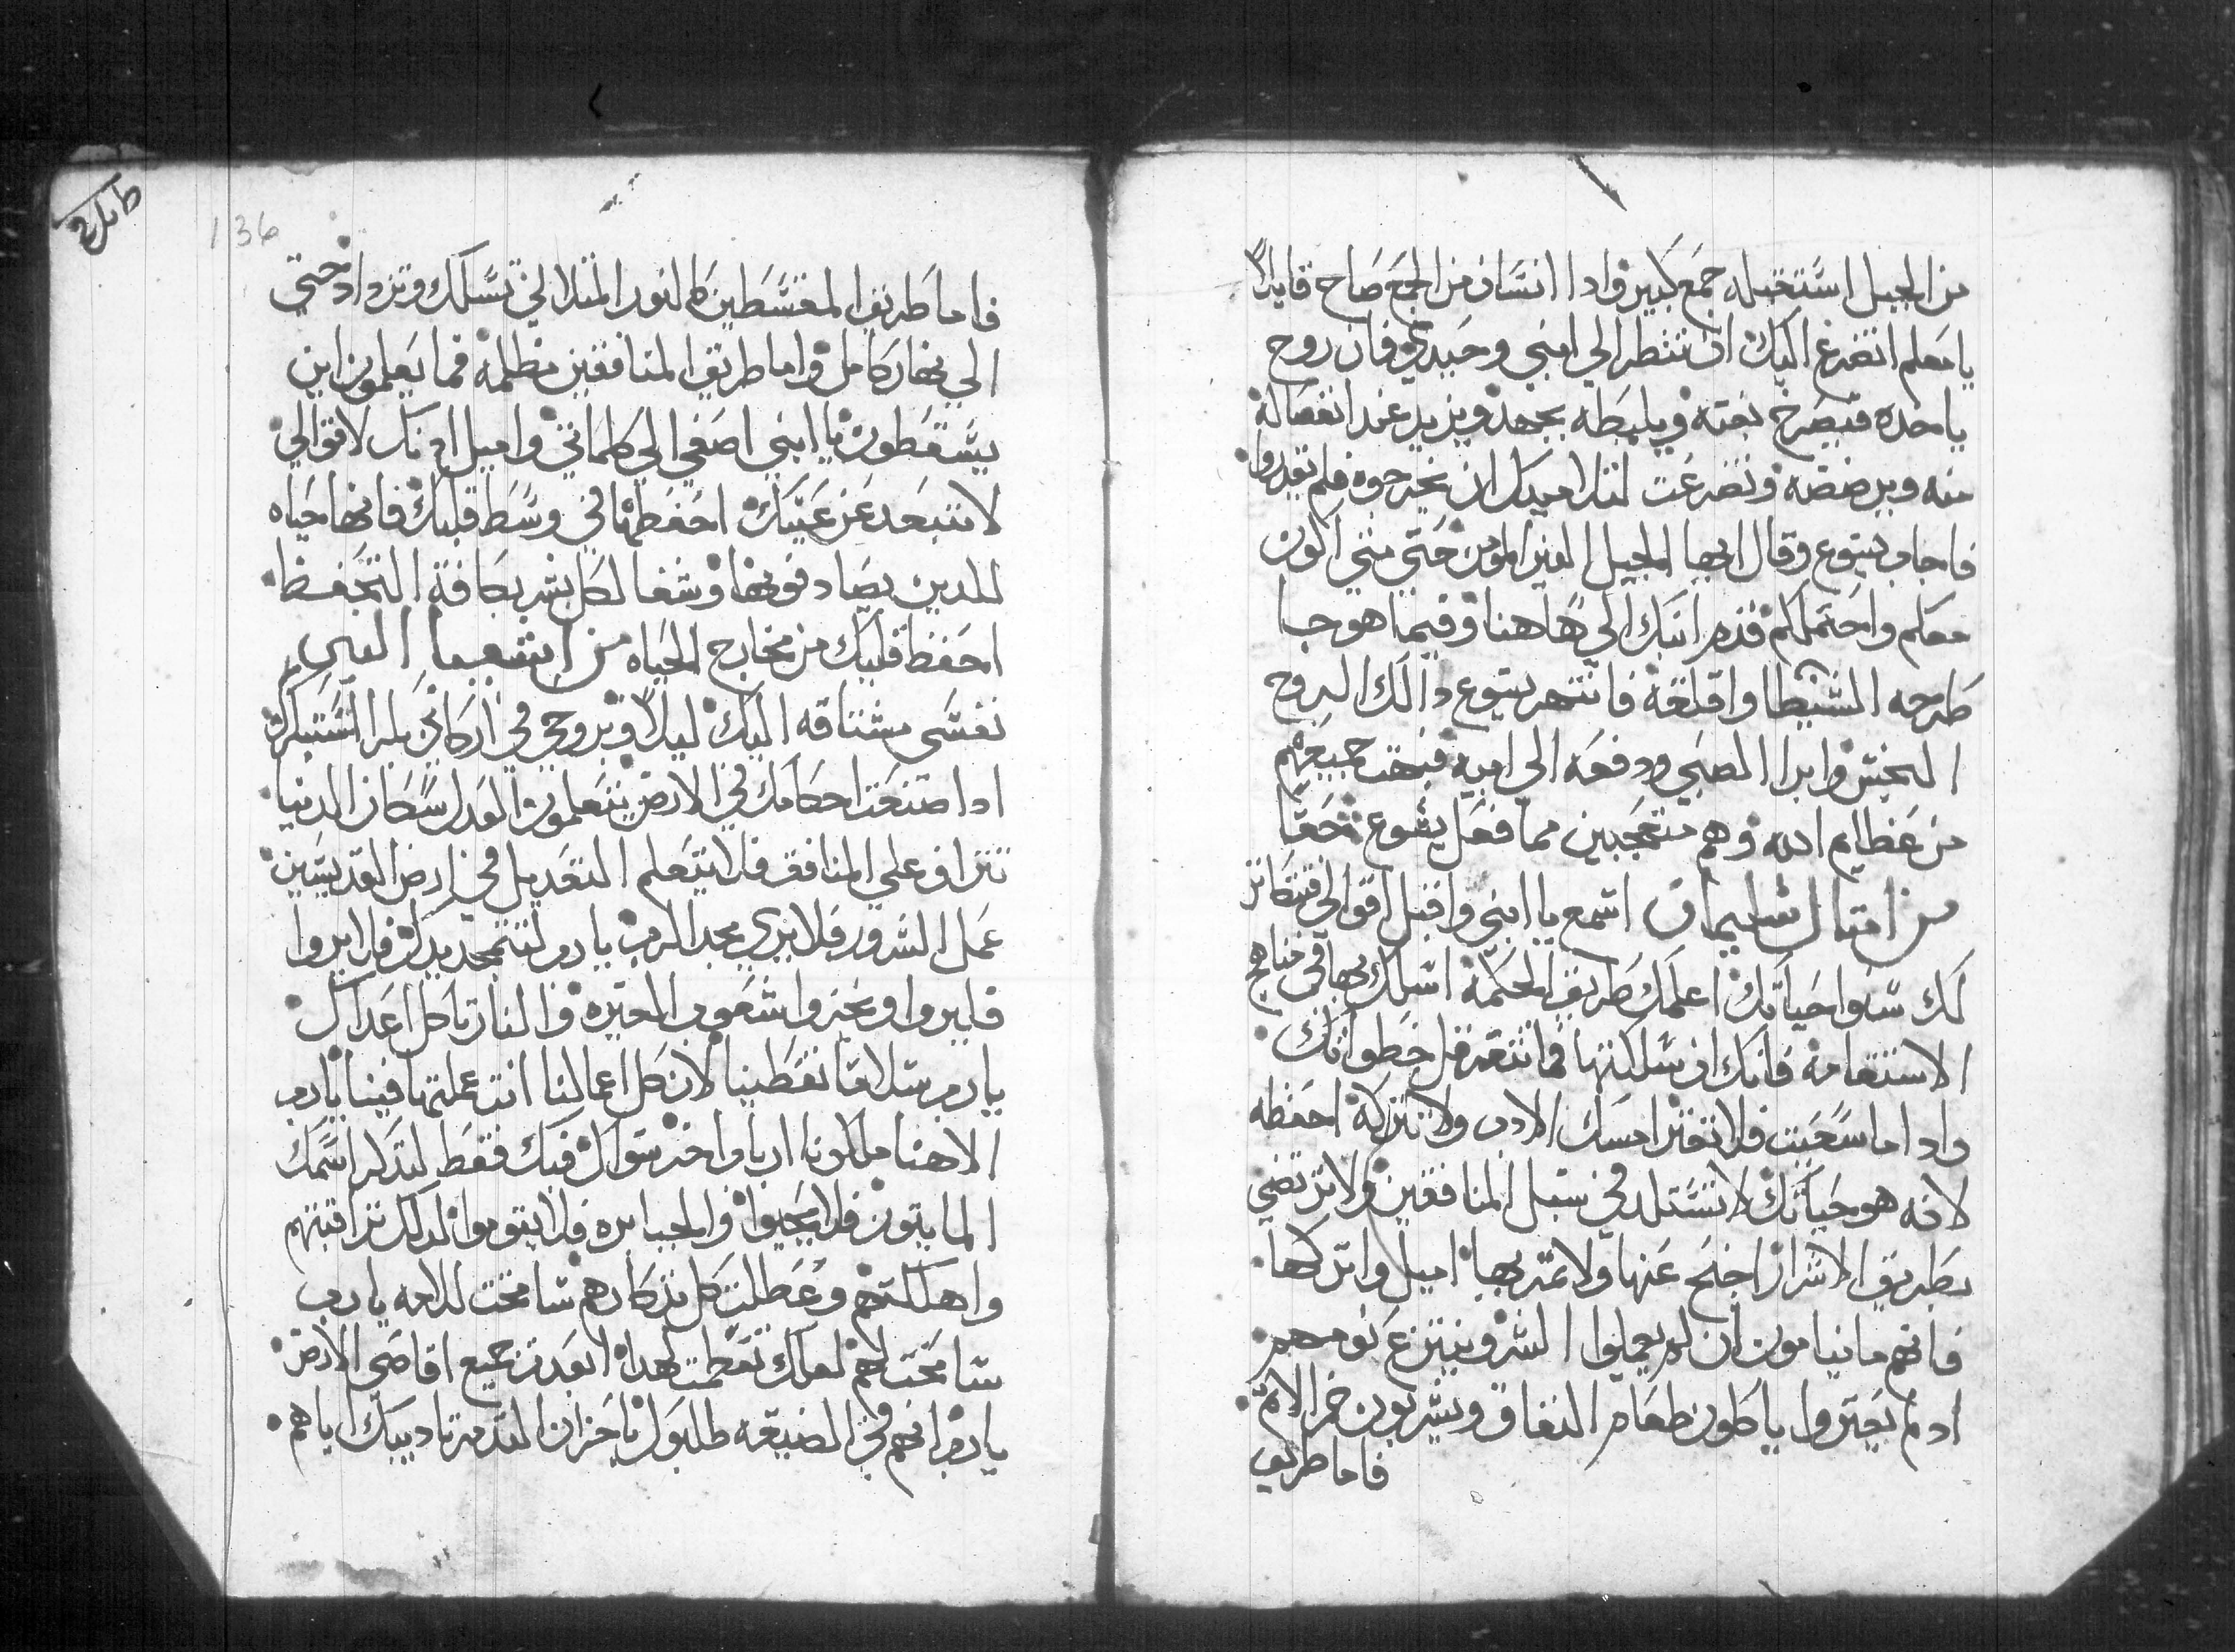 من الجبل استقبله جمع كبير واذا انسان من الجمع صاح قايلاً
يا معلم اتضرع اليك ان تنظر الي ابني وحيدي فان روح
ياخده فيصرخ بغته ويلبطه بجهد ويزبد عند انفصاله
منه ويرضضه وتضرعت لتلاميدك ان يخرجوه فلم يقدروا
فاجاب يسوع وقال ايها الجيل الغير المومن حتي متي اكون
معكم واحتملكم قدم ابنك الي هاهنا وفيما هو جا
طرحه الشيطا واقلقه فانتهر يسوع دالك الروح
النجس وابرا الصبي ودفعه الي ابيه فبهت جميعهم
من عظايم الله وهم متعجبين مما فعل يسوع حقا
من امتال سليمان اسمع يا ابني واقبل اقوالي فتكاتر
لك سنوا حياتك اعلمك طريق الحكمة اسلك بها في مناهج
الاستقامة فانك ان سلكتها فما تتعرقل خطواتك
وادا ما سعيت فلا تفتر امسك الادب ولا تتركه احفظه
لانه هو حياتك لا تستلد في سبل المنافقين ولا ترتضي
بطريق الاشرار اجنح عنها ولا تمر بها اميل واتركها
فانهم ما ينامون ان لم يعملوا الشر وينتزع نومهم
اد لم يعتروا ياكلون طعام النفاق ويشربون خمر الاتم
فاما طريق
طىىاىع
136
فاما طريق المقسطين كالنور المتلالي تسلك وتزداد حتي
الي نهار كامل واما طريق المنافقين مظلمة فما يعلمون اين
يسقطون يا ابني اصغي الي كلماتي واميل ادنك لاقوالي
لا تتبعد عن عينيك احفظها في وسط قلبك فانها حياه
للدين يصادفونها وشفا لكل بشر بكافة التحفظ
احفظ قلبك من مخارج الحياه من اشعيا النبي
نفسي مشتاقه اليك ليلاً وبروحي في اركاني بل استبكرت
ادا صنعت احكامك في الارض يتعلمون العدل سكان الدنيا
تتراف علي المنافق فلا يتعلم التعديل في ارض القديسين
عمل الشرور فلا يري مجد الرب يا رب لتتمجد يدك فلا يروا
فليروا ويخزوا شعوب الغيره والنار تاكل اعداك
يا رب سلاما تعطينا لان كل اعمالنا انت عملتها فينا يا رب
الاهنا ملكونا ارباب اخر سواك فيك فقط لندكر اسمك
المايتون فلا يحيوا والجبابره فلا يقوموا لدلك تراقبتهم
واهلكتهم وعطلت كل تدكارهم سامحت للامه يا رب
سامحت لهم لعلك تعظمت لهدا ابعدت جميع اقاصي الارض
يا رب انهم في الضيقه طلبوك يا حزان القدمة تاديبك اياهم